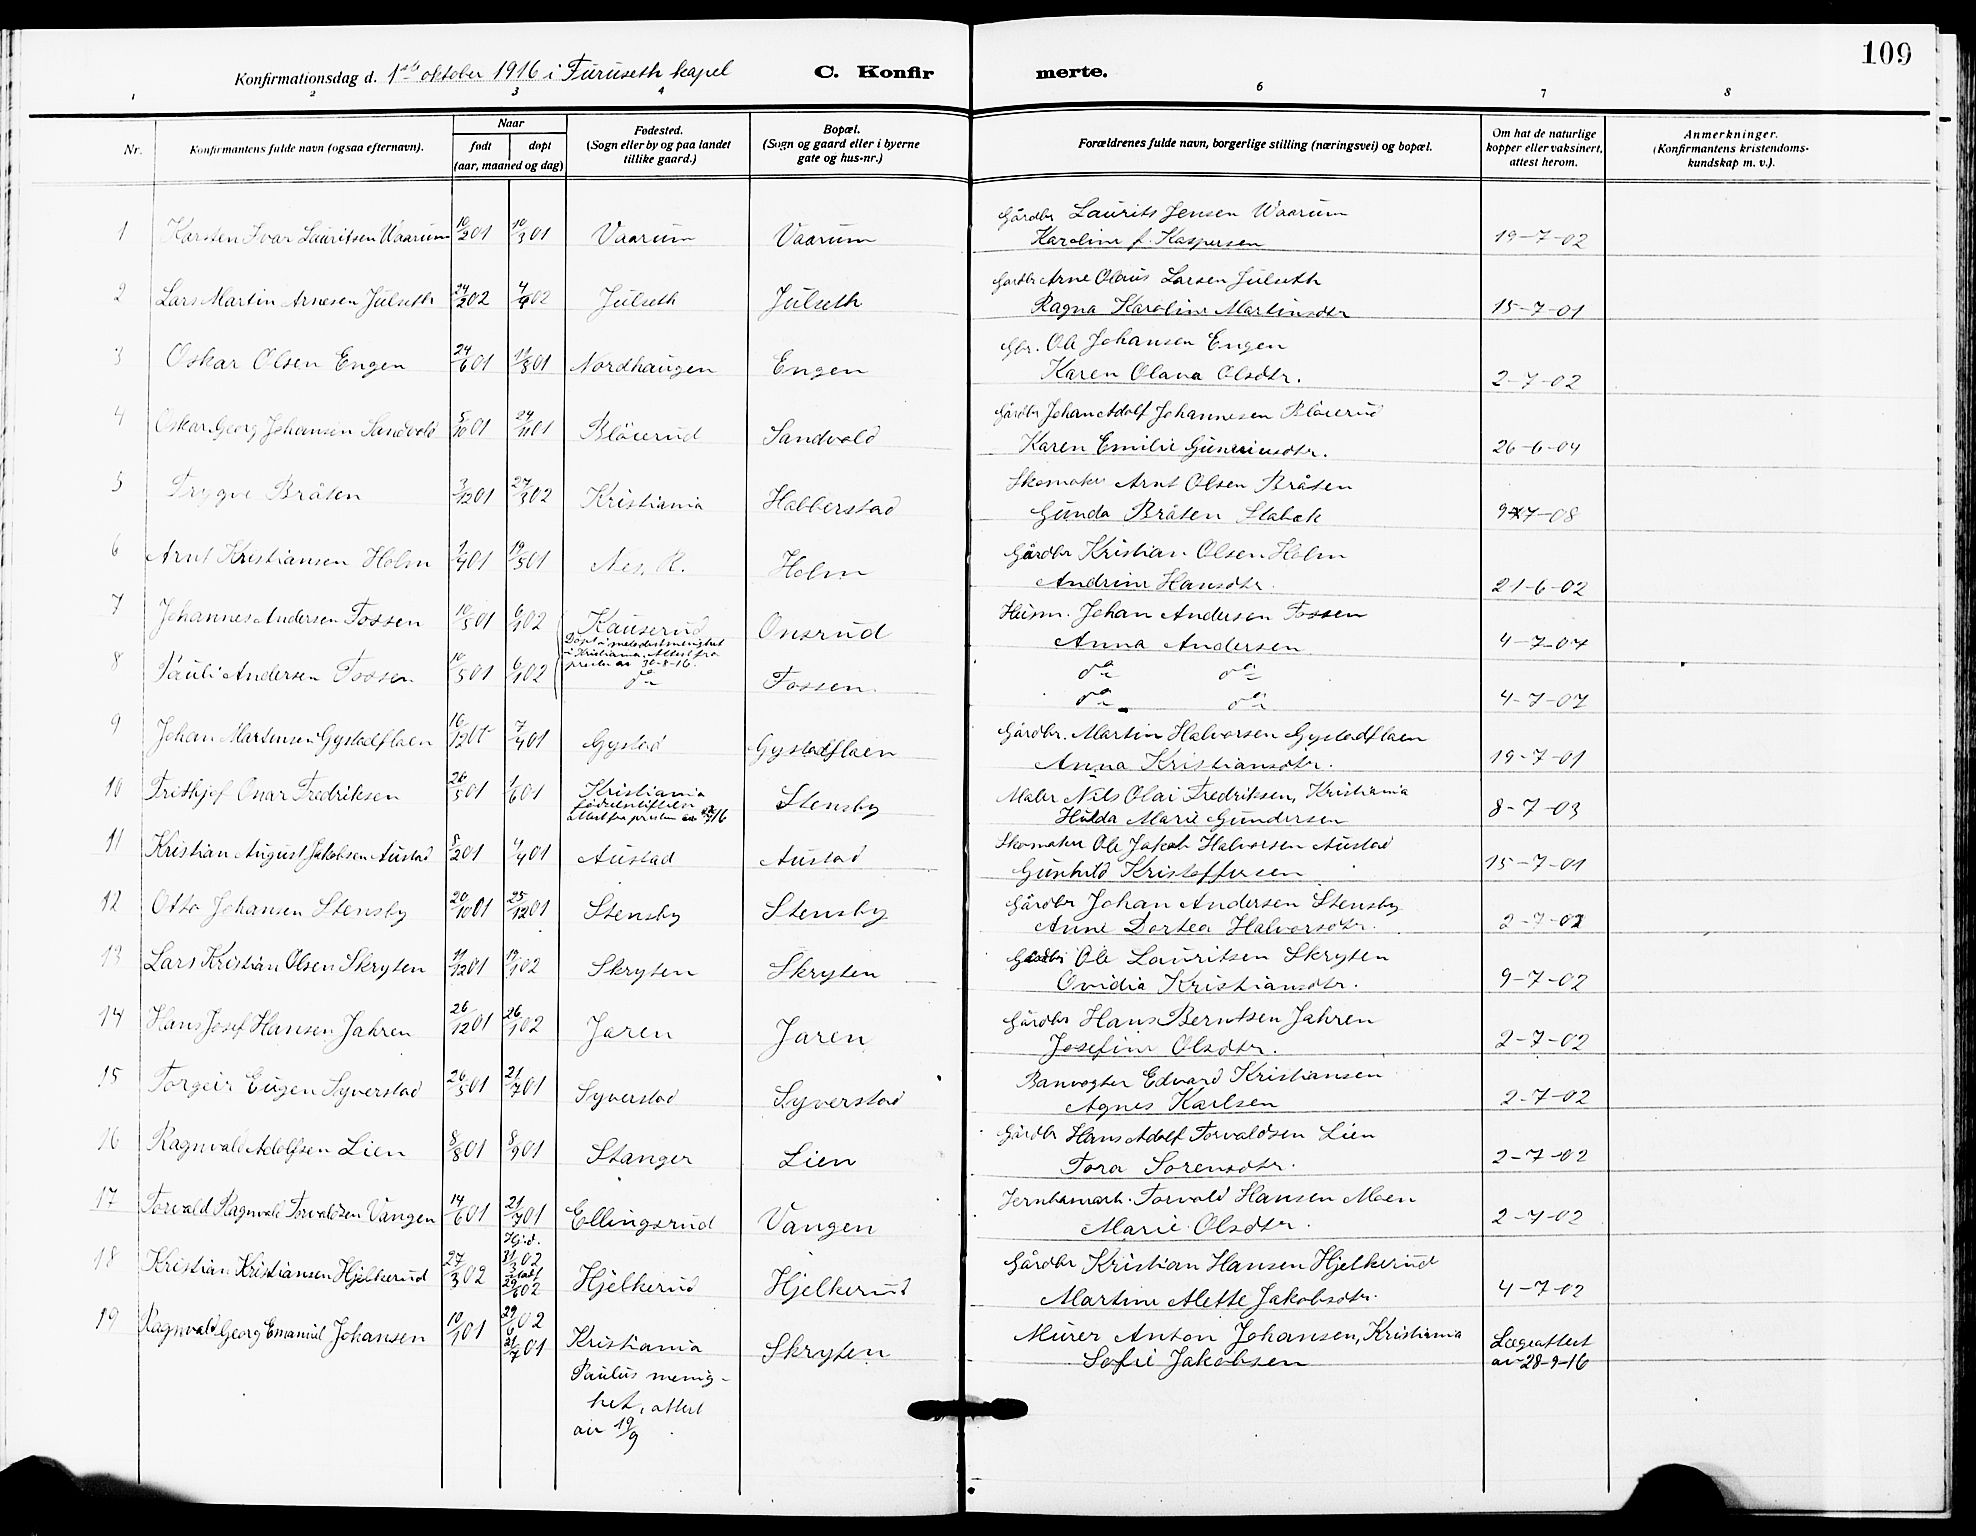 109
Konfirmationsdag d. 1ste oktober 1916 i Furuseth kapel C. Konfirmerte.
1 2 3 4 6 7 8
Nr. Konfirmantens fulde navn (ogsaa efternavn). Naar født døpt (aar, maaned og dag) Fødested. (Sogn eller by og paa landet tillike gaard.) Bopæl. (Sogn og gaard eller i byerne gate og hus-nr.) Forældrenes fulde navn, borgerlige stilling (næringsvei) og bopæl. Om hat de naturlige kopper eller vaksinert, attest herom. Anmerkninger. (Konfirmantens kristendomskundskap m. v.).
1 Karsten Ivar Lauritsen Waarum 10/2 01 10/3 01 Vaarum Vaarum Gårdbr Laurits Jensen Waarum
Karoline f. Kaspersen 19-7-02
2 Lars Martin Arnesen Julseth 24/2 02 4/4 02 Julseth Julseth Gårdbr Arne Olaus Larsen Julseth
Ragna Karoline Martinsdtr 15-7-01
3 Oskar Olsen Engen 24/6 01 11/8 01 Nordhaugen Engen Gbr. Ole Johansen Engen
Karen Olava Olsdtr. 2-7-02
4 Oskar Georg Johansen Sandvold 5/10 01 24/11 01 Bløierud Sandvold Gårdbr Johan Adolf Johannesen Bløierud
Karen Emilie Guneriusdtr. 26-6-04
5 Trygve Bråten 3/12 01 27/3 02 Kristiania Habberstad Skomaker Arnt Olsen Bråten
Gunda Bråten Stabæk 9-7-08
6 Arnt Kristiansen Holm 1/4 01 19/5 01 Nes, R. Holm Gårdbr Kristian Olsen Holm
Andrine Hansdtr. 21-6-02
7 Johannes Andersen Fossen 10/5 01 6/1 02 Kauserud Onsrud Husm. Johan Andersen Fossen
Døpt i metodistmenighet
i Kristiania. Attest fra
presten av 30-8-16.
Anna Andersen 4-7-07
8 Pauli Andersen Fossen 10/5 01 6/1 02 do Fossen do do
do do 4-7-07
9 Johan Martinsen Gystadflaen 16/12 01 7/4 01 Gystad Gystadflaen Gårdbr. Martin Halvorsen Gystadflaen
Anna Kristiansdtr. 19-7-01
10 Fridthjof Onar Fredriksen 26/3 01 1/6 01 Kristiania Stensby Maler Nils Olai Fredriksen, Kristiania
Fødselsstiftelsen
attest fra presten
Hulda Marie Gundersen 8-7-03
11 Kristian August Jakobsen Austad 8/2 01 4/4 01 Austad Austad Skomaker Ole Jakob Halvorsen Austad
Gunhild Kristoffersen 15-7-01
12 Otto Johansen Stensby 20/10 01 25/12 01 Stensby Stensby Gårdbr Johan Andersen Stensby
Anne Dortea Halvorsdtr. 2-7-02
13 Lars Kristian Olsen Skryten 11/12 01 19/1 02 Skryten Skryten Gårdbr Ole Lauritsen Skryten
Ovidia Kristiansdtr. 9-7-02
14 Hans Josef Hansen Jahren 26/12 01 26/1 02 Jaren Jaren Gårdbr Hans Berntsen Jahren
Josefine Olsdtr. 2-7-02
15 Torgeir Eugen Syverstad 26/5 01 21/7 01 Syverstad Syverstad Banvogter Edvard Kristiansen
Agnes Karlsen 2-7-02
16 Ragnvald Adolfsen Lien 8/8 01 8/9 01 Stanger Lien Gårdbr Hans Adolf Torvaldsen Lien
Tora Sørensdtr. 2-7-02
17 Torvald Ragnvald Torvaldsen Vangen 14/6 01 21/7 01 Ellingsrud Vangen Jernbanearb. Torvald Hansen Moen
Marie Olsdtr. 2-7-02
18 Kristian Kristiansen Hjelkerud 27/3 02 Hj.d. 31/3 02 stadf 29/6 02 Hjelkerud Hjelkerud Gårdbr Kristian Hansen Hjelkerud
Martine Alette Jakobsdtr. 4-7-02
19 Ragnvald Georg Emanuel Johansen 10/1 01 29/6 02 21/7 01 Kristiania Skryten Murer Anton Johansen, Kristiania
Sofie Jakobsen Lægeattest
av 28-9-16
Paulus menig-
het, attest
av 19/9